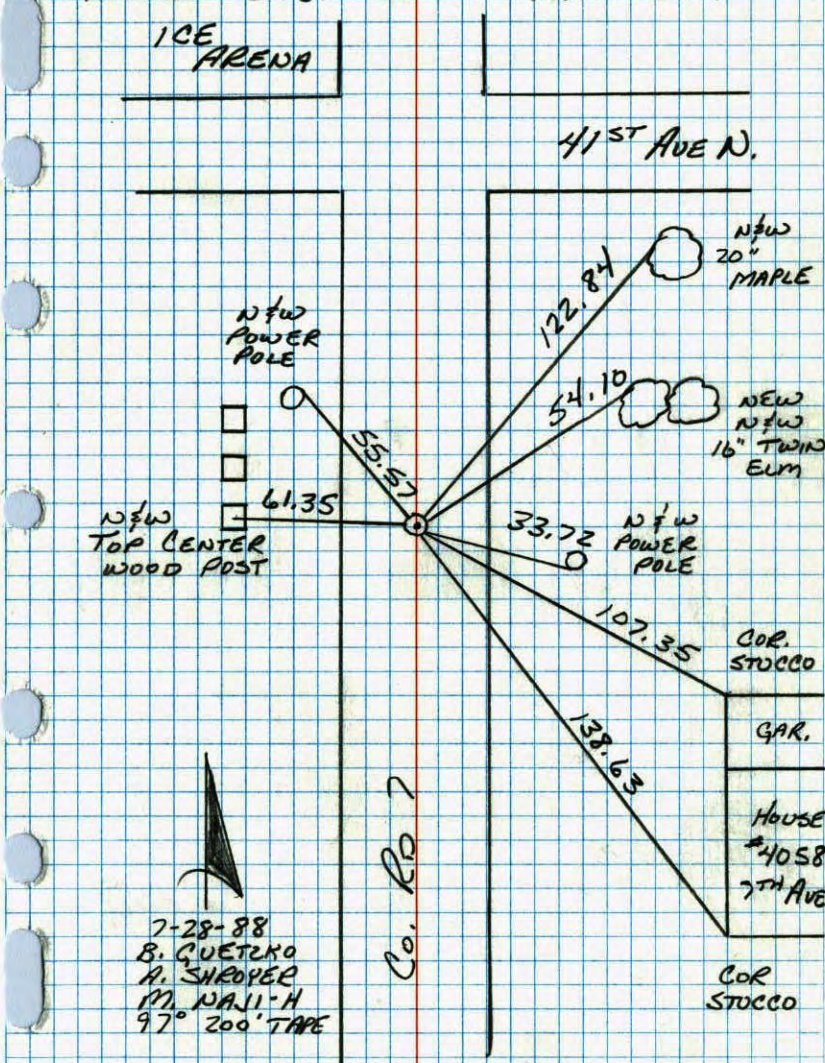 ICE
ARENA
41ST AVE N.
N & W
20"
MAPLE
122.84
N & W
POWER
POLE
54.10
NEW
N & W
16" TWIN
ELM
55.57
61.35
N & W
TOP CENTER
WOOD POST
33.72
N & W
POWER
POLE
107.35
COR.
STUCCO
138.63
GAR.
HOUSE
#4058
7TH AVE
Co. RD 7
7-28-88
B. GUETZKO
A. SHROYER
M. NAJI-H
97° 200' TAPE
COR
STUCCO